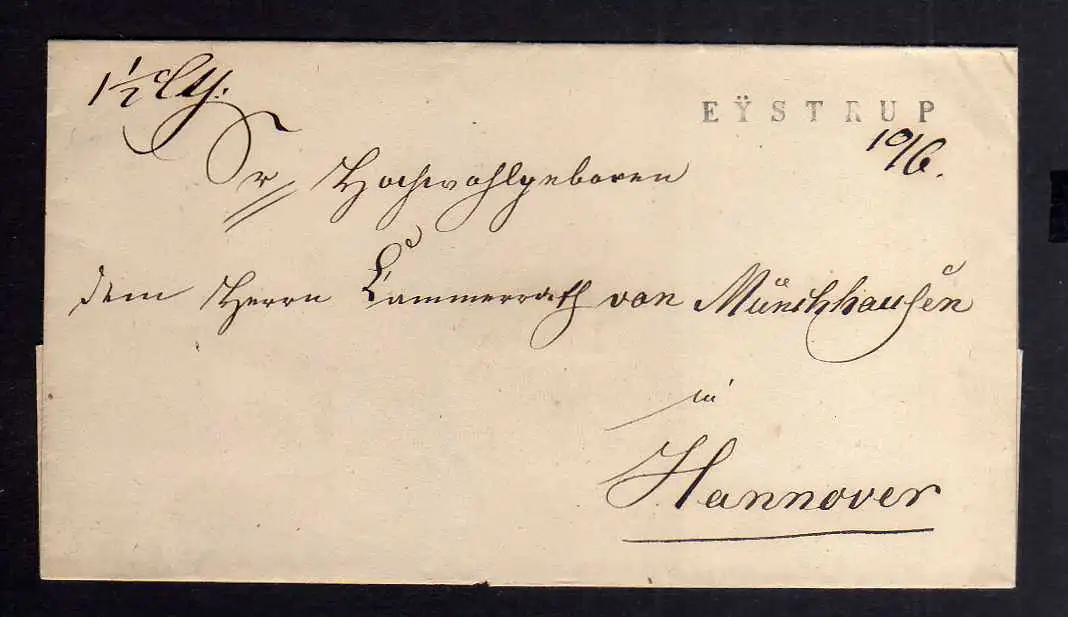 1½ Lth.
EŸSTRUP
10/6.
Sr Hochwohlgeboren
dem Herrn Cammerrath von Münchhausen
in
Hannover